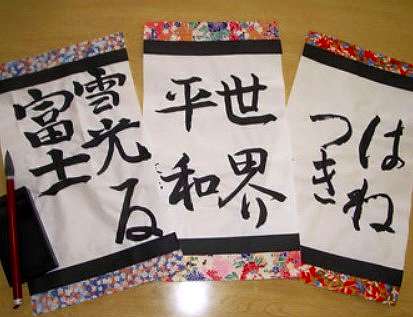 はね
つき
世界
平和
雲光反
富士